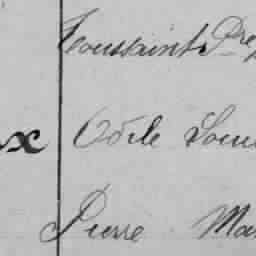 Toussaint Pre
x Odile Loui
Pierre Ma